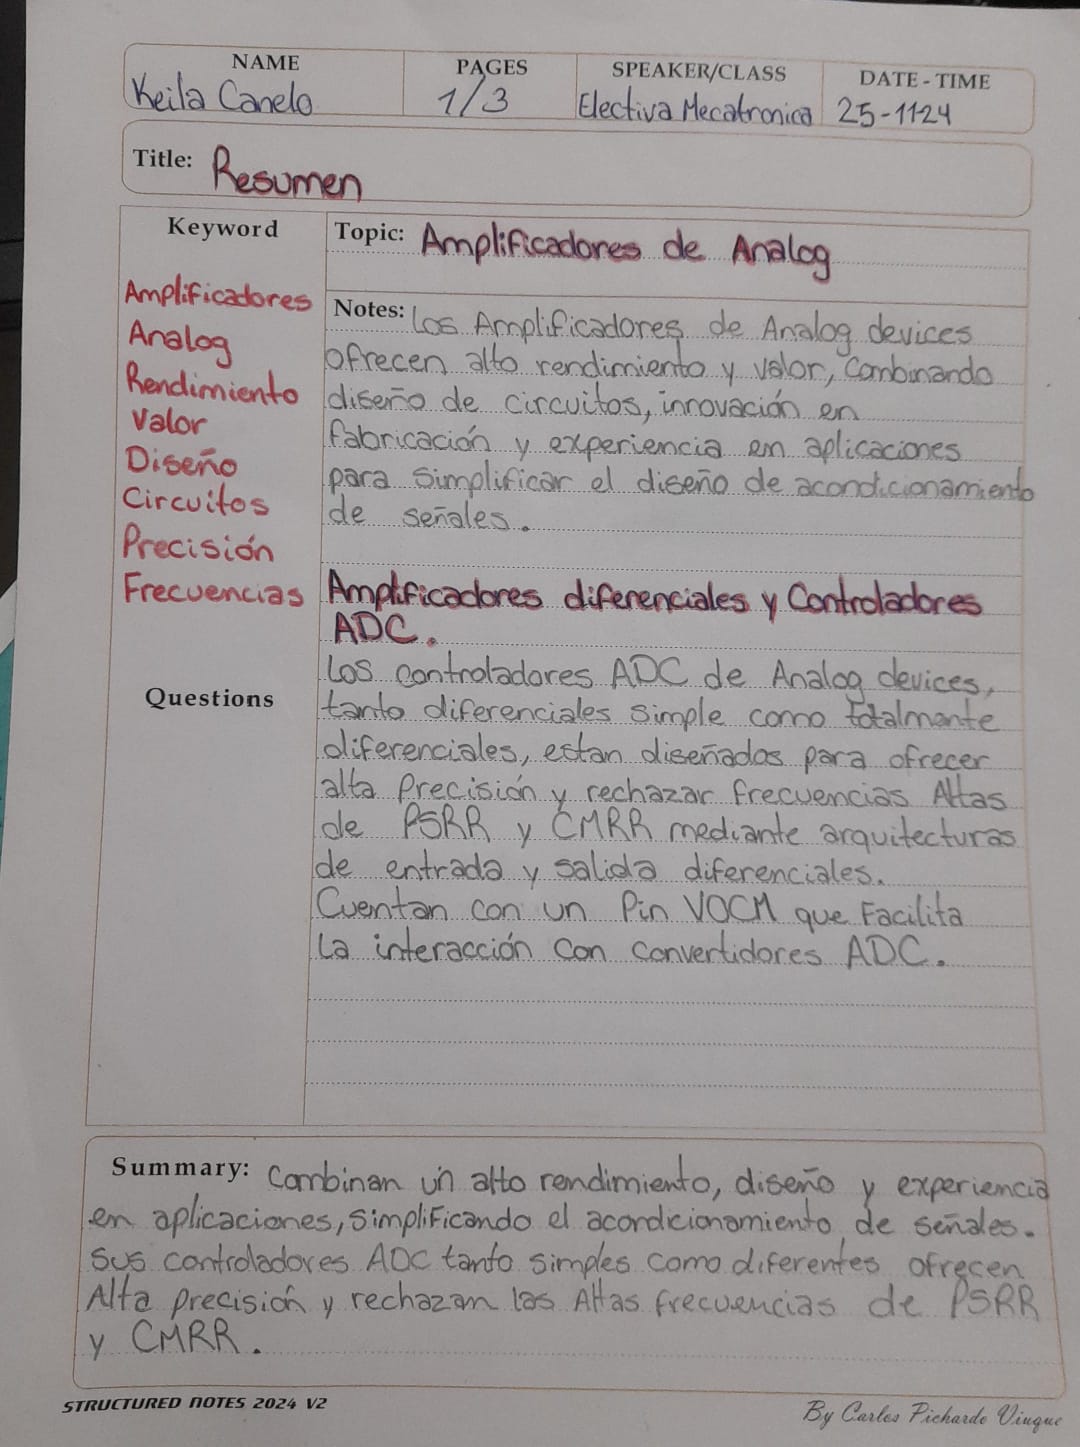 NAME PAGES SPEAKER/CLASS DATE - TIME
Keila Canelo 1/3 Electiva Mecatronica 25-1124
Title: Resumen
Keyword
Amplificadores
Analog
Rendimiento
Valor
Diseño
Circuitos
Precisión
Frecuencias
Questions
Topic: Amplificadores de Analog
Notes: Los Amplificadores de Analog devices
ofrecen alto rendimiento y valor, Combinando
diseño de circuitos, innovación en
fabricación y experiencia en aplicaciones
para simplificar el diseño de acondicionamiento
de señales.
Amplificadores diferenciales y Controladores
ADC.
Los controladores ADC de Analog devices,
tanto diferenciales simple como totalmante
diferenciales, estan diseñados para ofrecer
alta Precisión y rechazar frecuencias Altas
de PSRR y CMRR mediante arquitecturas
de entrada y salida diferenciales.
Cuentan con un Pin VOCM que Facilita
la interacción con convertidores ADC.
Summary: Combinan un alto rendimiento, diseño y experiencia
en aplicaciones, simplificando el acordicionamiento de señales.
Sus controladores ADC tanto simples como diferentes ofrecen
Alta precisión y rechazan las Altas frecuencias de PSRR
y CMRR.
STRUCTURED NOTES 2024 V2
By Carlos Pichardo Viuque